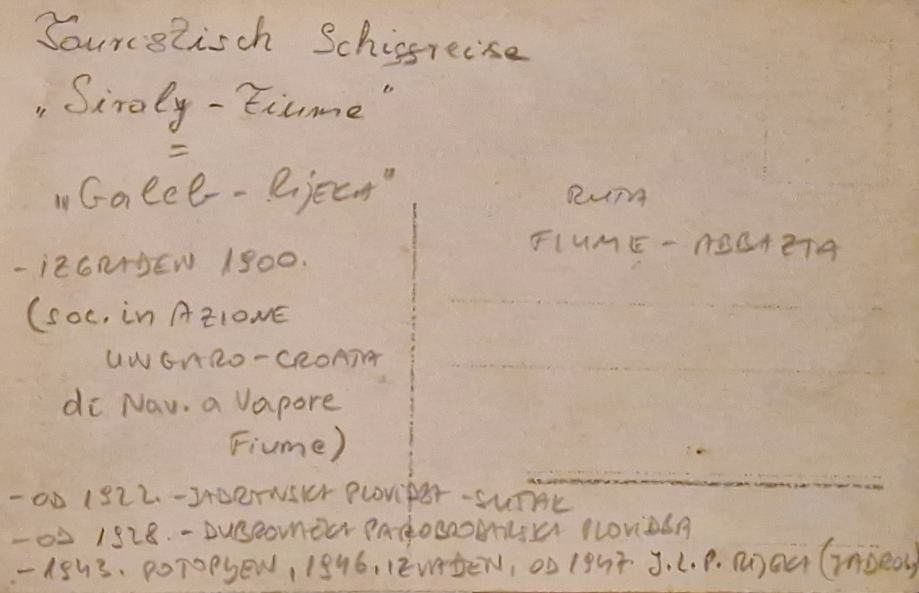 Touristisch Schiffreise
„Siraly - Fiume"
=
„Galeb - RijEKA"
- IZGRAĐEN 1900.
(soc. in AZIONE
UNGARO-CROATA
di Nav. a Vapore
Fiume)
RUTA
FIUME - ABBAZIA
- OD 1922. - JADRANSKA PLOVIDBA - SUŠAK
- OD 1928. - DUBROVAČKA PAROBRODARSKA PLOVIDBA
- 1943. POTOPLJEN, 1946. IZVAĐEN, OD 1947. J.L.P. RIJEKA (JADROL